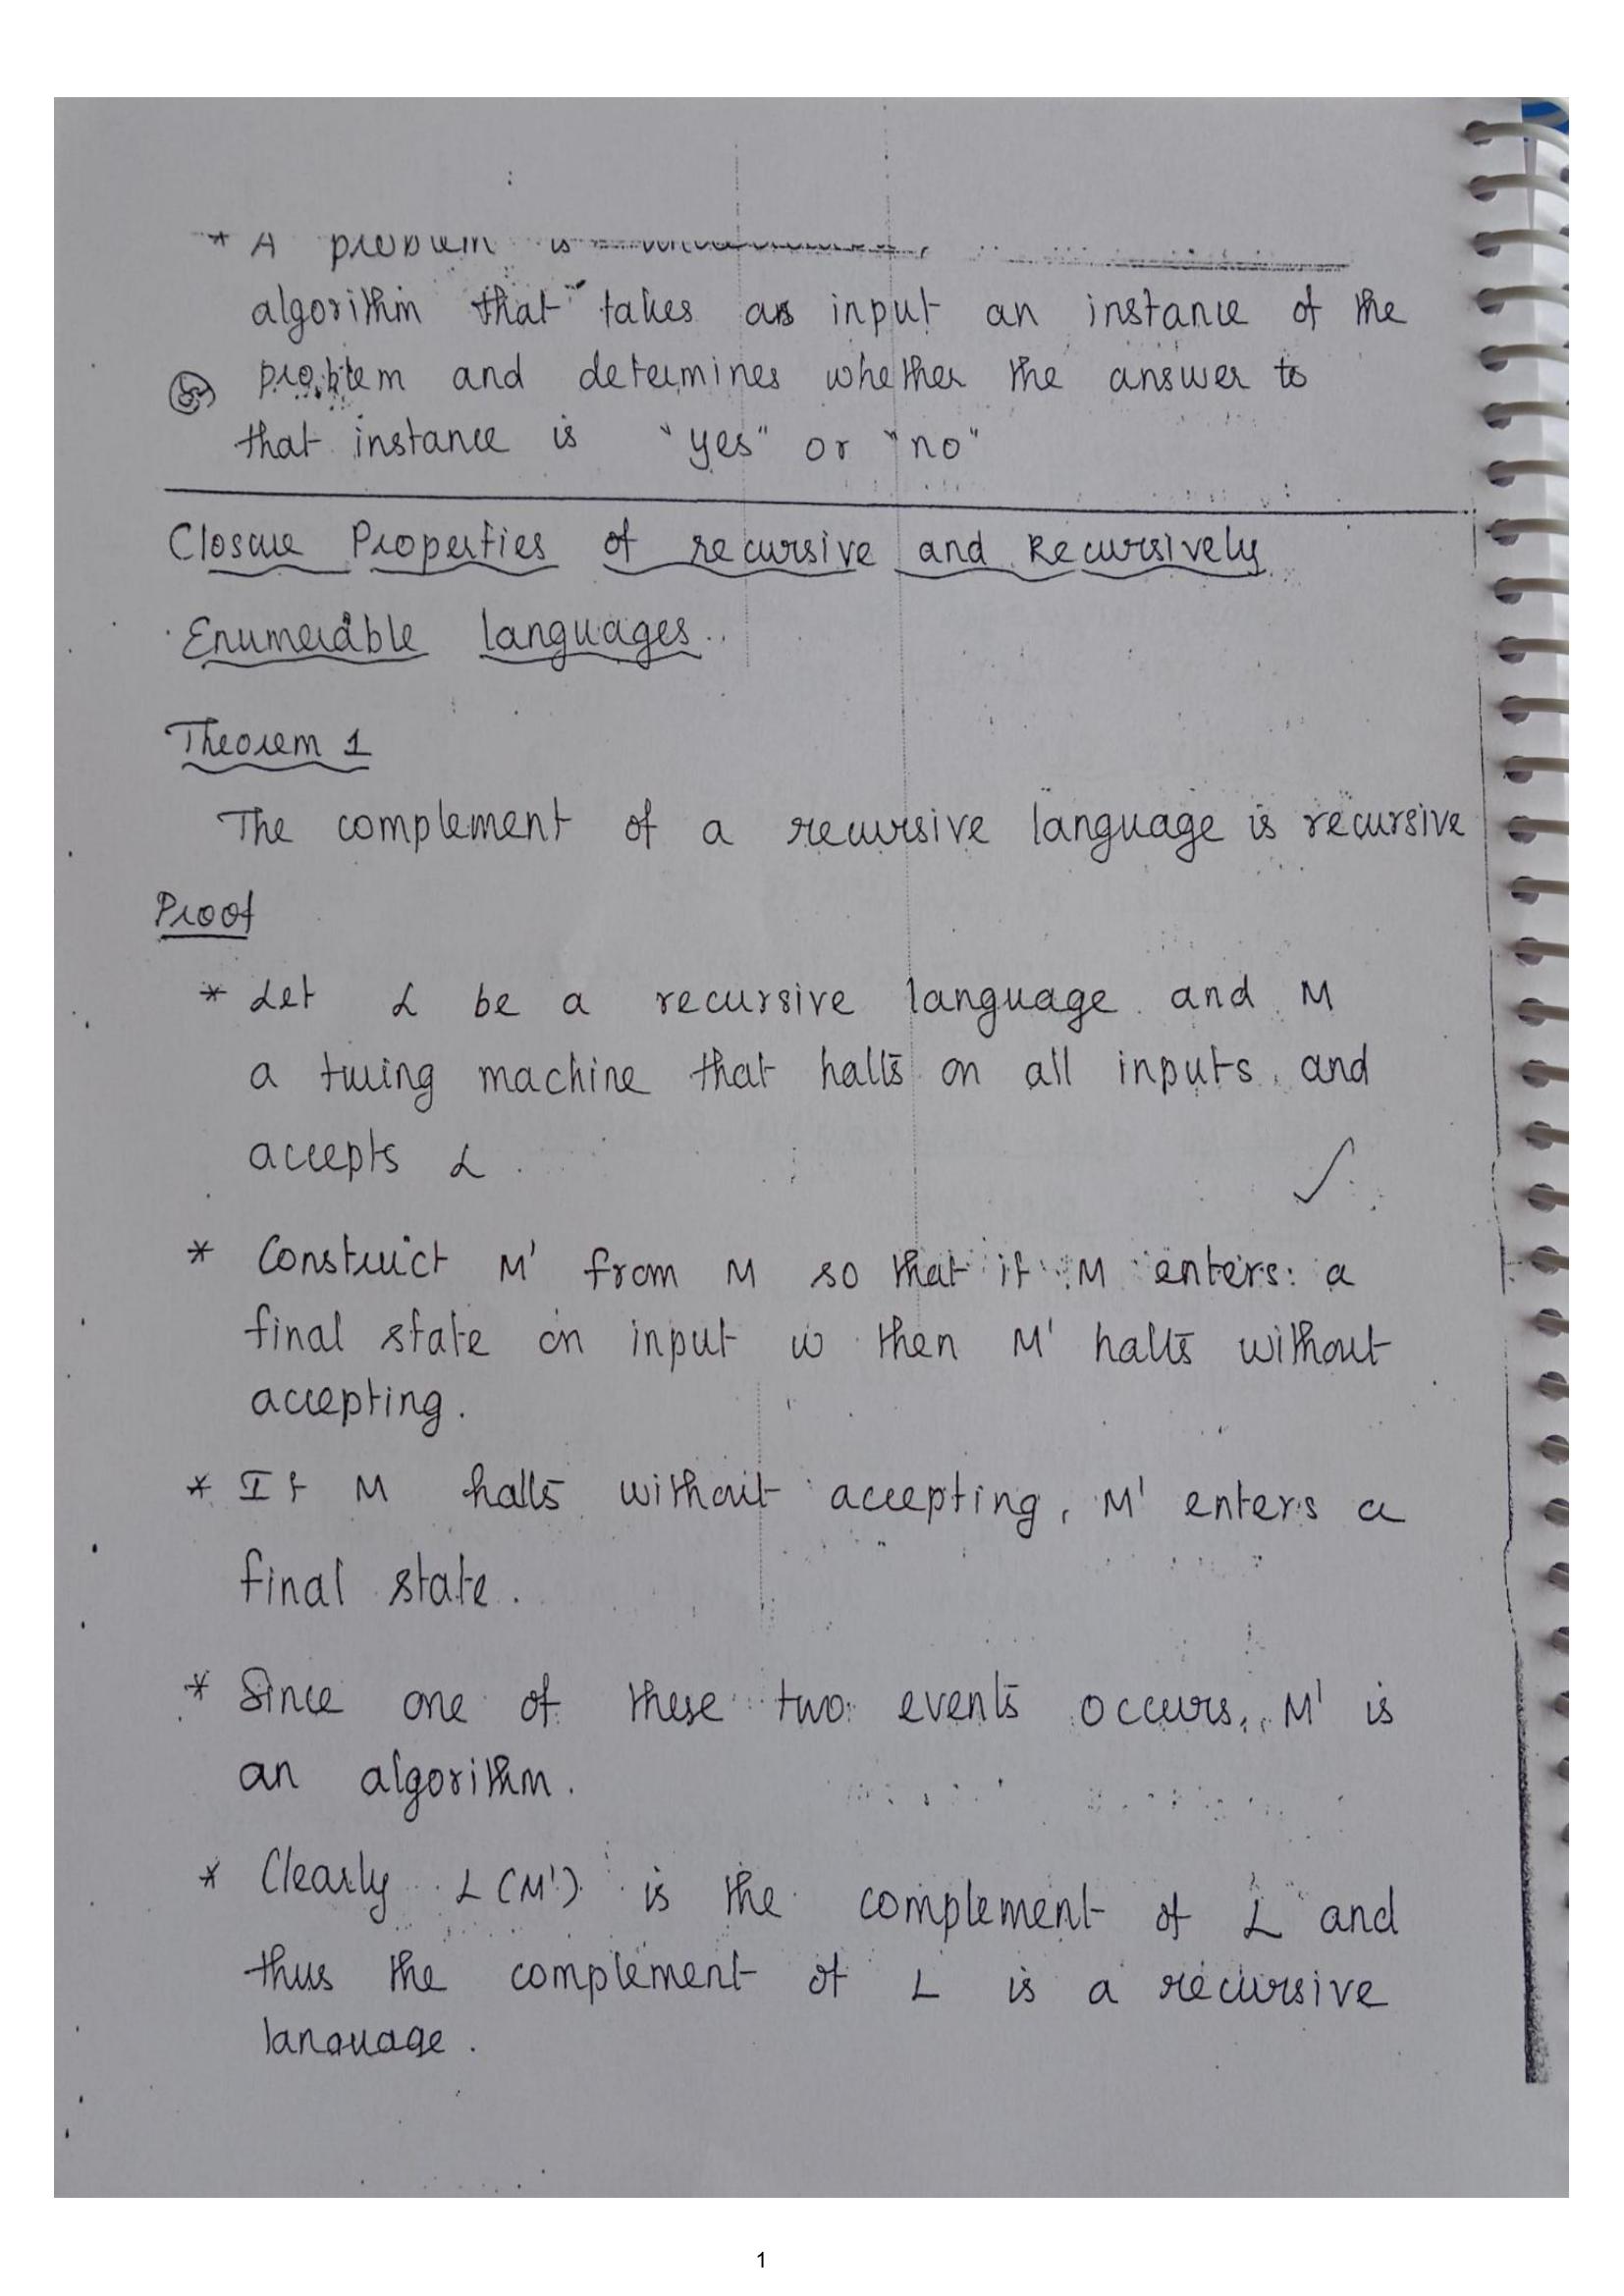 * A problem is
algorithm that takes as input an instance of the
problem and determines whether the answer to
that instance is "yes" or "no"
Closure Properties of recursive and Recursively
Enumerable languages.
Theorem 1
The complement of a recursive language is recursive
Proof
* Let L be a recursive language and M
a turing machine that halts on all inputs and
accepts L.
* Construct M' from M so that if M enters a
final state on input w then M' halts without
accepting.
* If M halts without accepting, M' enters a
final state.
* Since one of these two events occurs, M' is
an algorithm.
* Clearly L(M') is the complement of L and
thus the complement of L is a recursive
language.
1